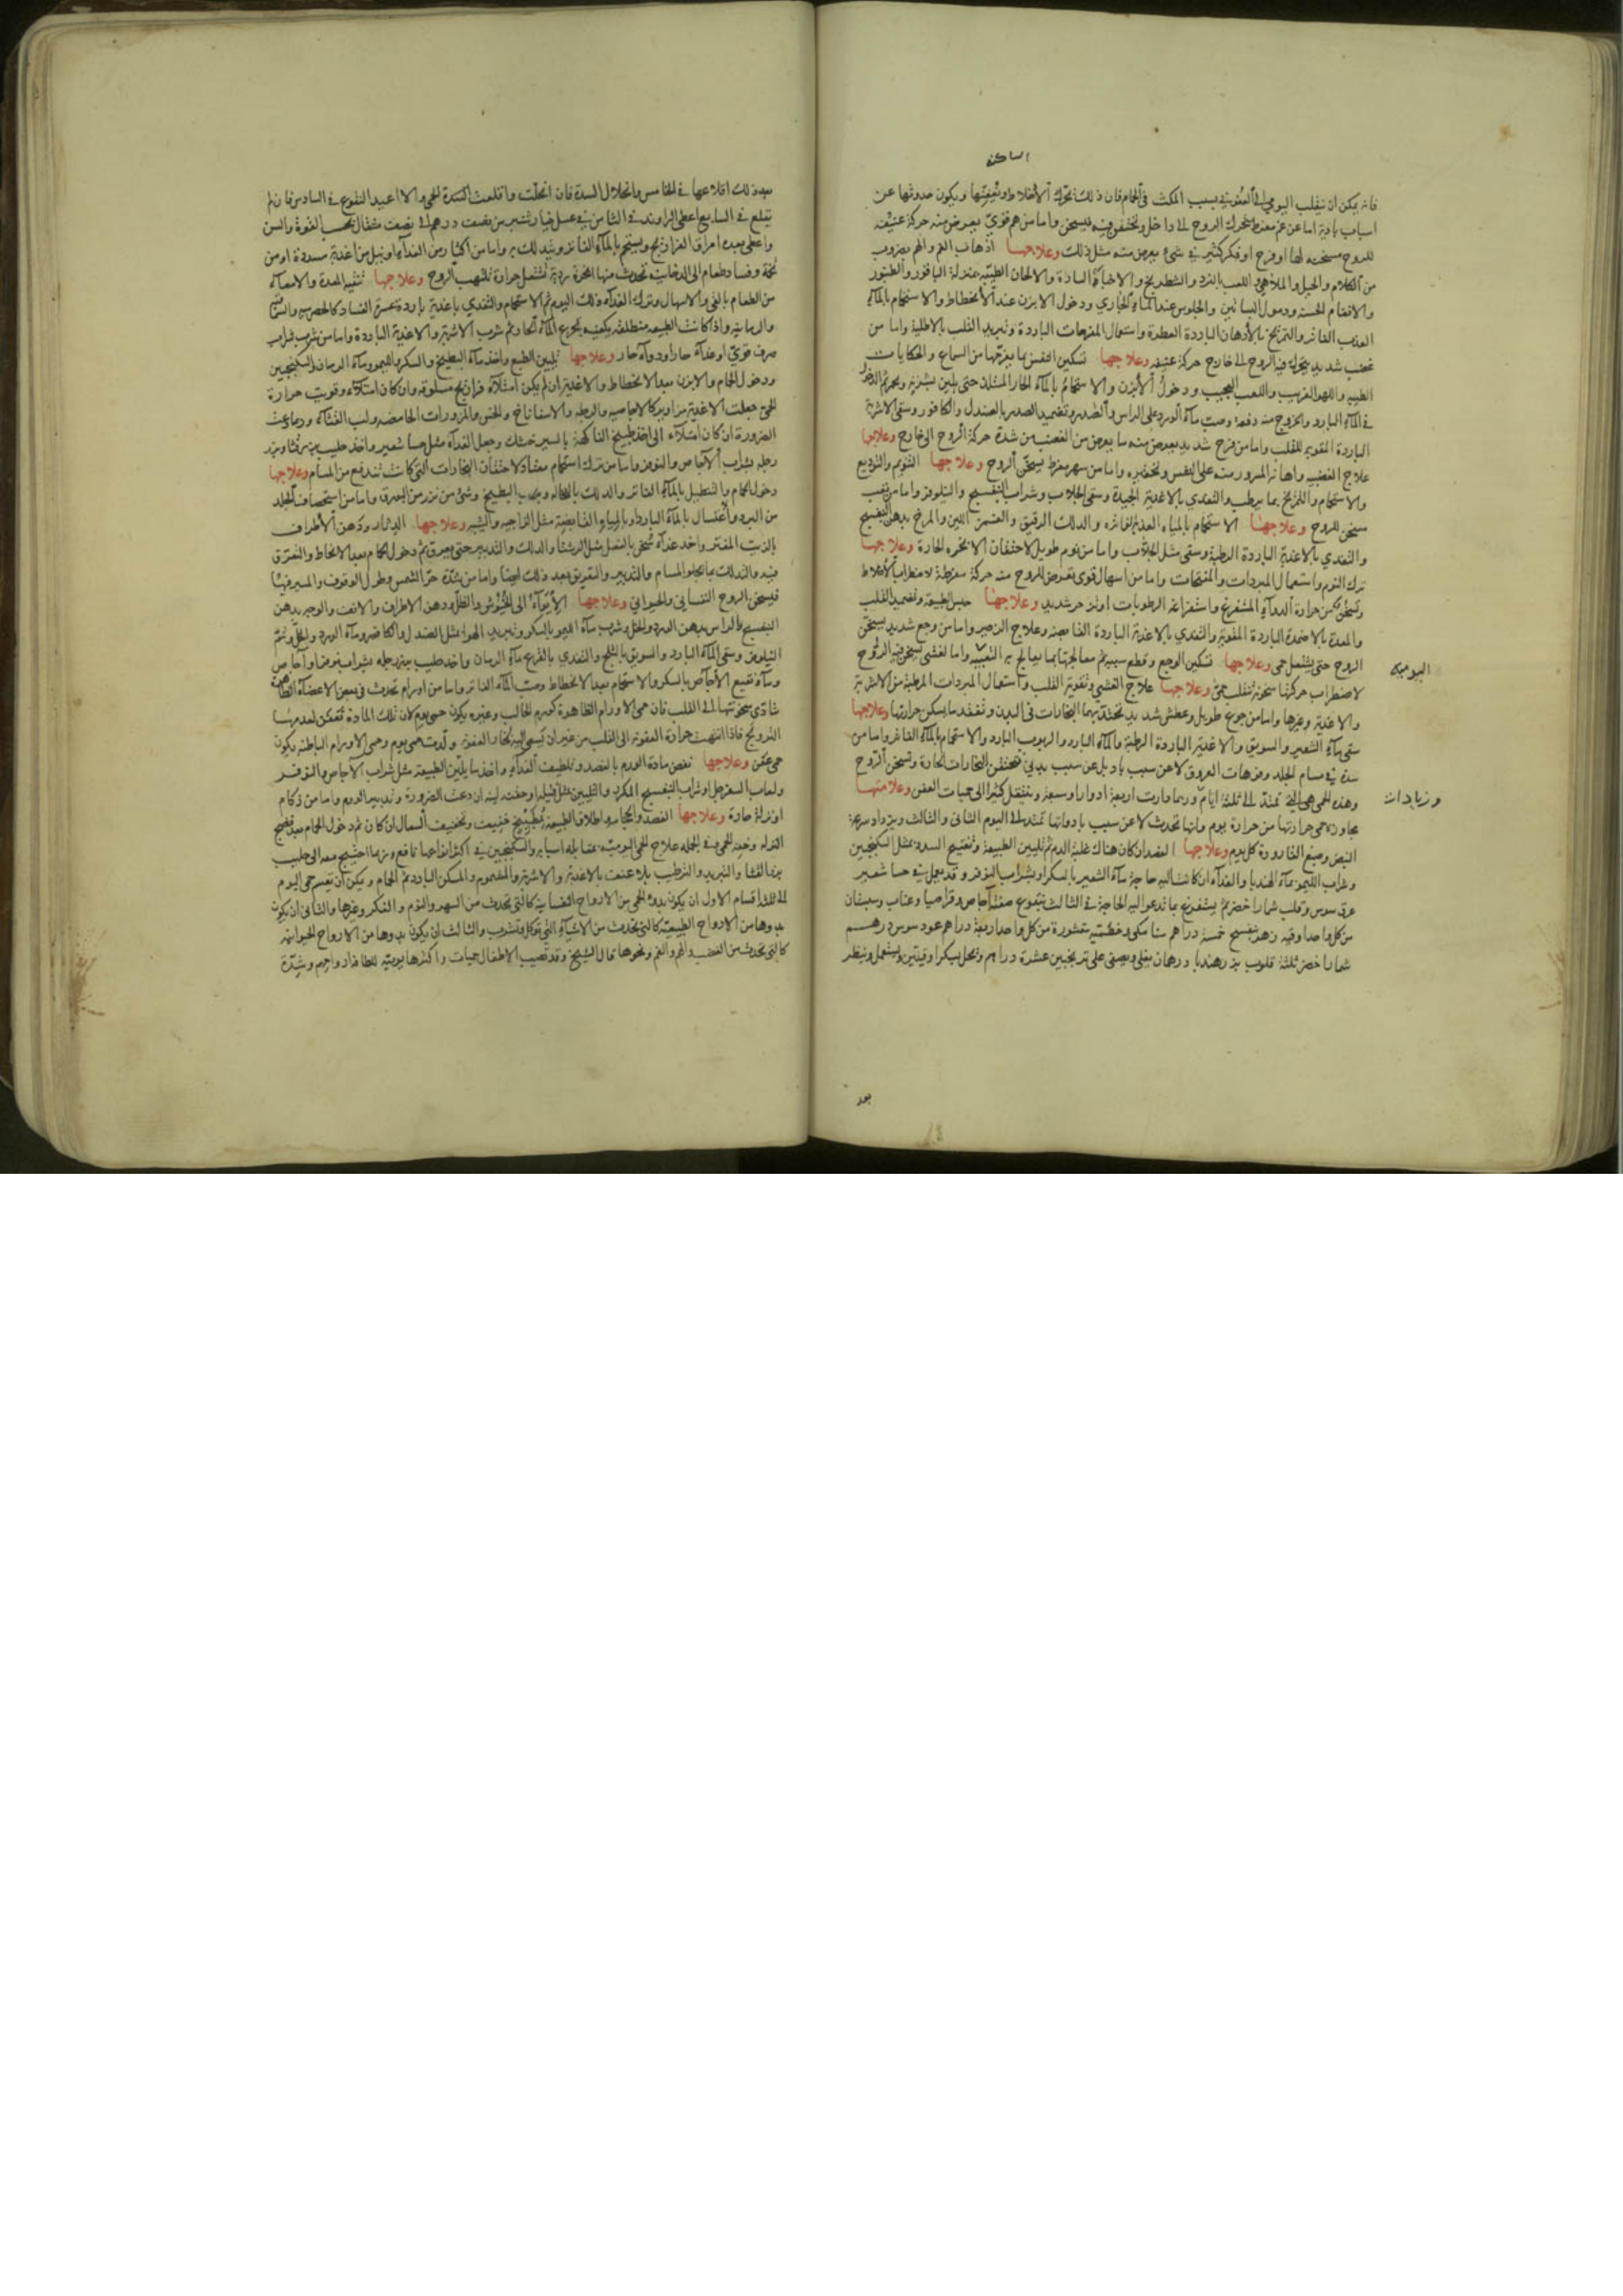 الساكنة
فانه يمكن ان ينقلب اليومي الى العفونة بسبب المكث في الحمام فان ذلك يحرك الاخلاط ويعفنها ويكون حدوثها عن
اسباب بادية اما عن غم مفرط يتحرك الروح الى داخل وتختنق فيه فيسخن واما من هم قوي يعرض منه حركة عنيفة
للروح مسخنه لها او فرح او فكر كثير في شيء يعرض منه مثل ذلك وعلاجها اذهاب الغم والهم بضروب
من الكلام والحيل والملاهي واللعب بالنرد والشطرنج والاخبار السارة والالحان الطيبة
والانغام الحسنة ودخول البساتين والجلوس عند الماء الجاري ودخول الابزن عند الانحطاط والاستحمام بالماء
العذب الفاتر والتمريخ بالادهان الباردة العطرة واستعمال المفرحات الباردة وتبريد القلب بالاطلية واما من
غضب شديد يتحرك فيه الروح الى خارج حركة عنيفه وعلاجها تسكين النفس بما يفرحها من السماع والحكايات
الطيبه واللهو الغريب واللعب العجيب ودخول الابزن والاستحمام بالماء الحار حتى يلين بشرته
في الماء البارد والخروج منه دفعة وصب ماء الورد على الراس والصدر وتضميد الصدر بالصندل والكافور وسقي الاشربة
الباردة المقوية للقلب واما من فرح شديد يعرض منه ما يعرض من الغضب من شدة حركة الروح الى خارج وعلاجها
علاج الغضبيه واما من سهر مفرط يسخن الروح وعلاجها التنويم والتوديع
والاستحمام والتمريخ بما يرطب والتغدي بالاغدية الجيدة وسقي الجلاب وشراب البنفسج والنيلوفر واما من تعب
مسخن للروح وعلاجها الاستحمام بالمياه العذبة الفاترة والدلك الرقيق والغمز اللين والمرخ بدهن البنفسج
والتغدي بالاغدية الباردة الرطبة وسقي مثل الجلاب واما من نوم طويل لاحتقان الابخره الحارة وعلاجها
ترك النوم واستعمال المبردات والمفتحات واما من اسهال قوي تعرض للروح منه حركة مفرطة لاضطراب الاخلاط
وتسخن من حرارة الدواء المستفرغ واستفراغه الرطوبات وعلاجها حبس الطبيعة وتضميد القلب
والمعدة بالاضمدة الباردة المقوية والتغدي بالاغدية الباردة القابضه وعلاج الزحير واما من وجع شديد يسخن
الروح حتى يشتعل حمى وعلاجها تسكين الوجع وقطع سببه ثم معالجتها بما يعالج به التعبية واما لغشي يسخن فيه الروح
اليوميه
لاضطراب حركتها سخونة تنقلب حمى وعلاجها علاج الغشي وتقوية القلب واستعمال المبردات المرطبة من الاشربة
والاغدية وغيرها واما من جوع طويل وعطش شديد تحتد بهما البخارات في البدن وتفقد ما يسكن حرارتها وعلاجها
سقي ماء الشعير والسويق والاغدية الباردة الرطبة والماء البارد والربوب البارد والاستحمام بالماء الفاتر واما من
سدة في مسام الجلد وفوهات العروق لا عن سبب باد بل عن سبب بدني فتحتقن البخارات الحارة وتسخن الروح
وهذه الحمى هي التي تمتد الى ثلثة ايام وربما دارت اربعة ادوار او سبعة وتنتقل كثيرا الى حميات العفن وعلامتها
وزيادات
مجاوزة حمى حرارتها من حرارة يوم وانها تحدث لا عن سبب باد وانها تمتد الى اليوم الثاني والثالث ويزداد سرعة
النبض وصبغ القارورة كل يوم وعلاجها الفصد ان كان هناك غلبة الدم ثم تليين الطبيعة وتفتيح السدد بمثل السكنجبين
وشراب الليمو بماء الهندبا والغداء ان كانت اليه حاجة ماء الشعير بالسكر او بشراب النوفر
عرق سوس وقلب شمار اخضر ثم يستفرغ بما تدعو اليه الحاجة في الثالث بنقوع صفته اجاص وقراصيا وعناب وسبستان
من كل واحد اوقيه زهر بنفسج خمسة دراهم سنا مكي من كل واحد اربعة دراهم عود سوس درهم
شمار اخضر ثلثة قلوب بزر هندبا درهمان يغلي ويصفى على ترنجبين عشرة دراهم ويحل بسكر اوقيتين ويستعمل وينظر
بعد
بعد ذلك اقلاعها في الخامس وانحلال السدة فان انحلت واقلعت السدة الحمى والا اعيد النقوع في السادس فان لم
تقلع في السابع اعطى الراوند في الثامن من نصف درهم الى نصف مثقال بحسب القوة والسن
واعطى بعده امراق الفراريج ويستحم بالماء الفاتر ويتدلك به واما من اكثار من الغداء
تخمة وفساد طعام الى الدخانية تحدث منها ابخرة ردية تشتعل حرارة تلهب الروح وعلاجها تنقيه المعدة والامعاء
من الطعام بالقي والاسهال وترك الغداء ذلك اليوم ثم الاستحمام والتغدي باغدية باردة عسرة الفساد كالحصرميه
والرمانيه واذا كانت الطبيعه منطلقه يكفيه تجرع الماء الحار ثم شرب الاشربة والاغدية الباردة واما من شرب شراب
صرف قوي او غداء حار او دواء حار وعلاجها تليين الطبع واخذ ماء البطيخ والسكر والليمو وماء الرمان والسكنجبين
ودخول الحمام والابزن بعد الانحطاط والاغدية ان لم يكن امتلاء فراريج مسلوقه وان كان امتلاء وقويت حرارة
الحمى جعلت الاغدية مزاوير كالاجاصيه والرجله والاسفاناخ والخس والمزورات الحامضه ولب القثاء ودعت
الضرورة ان كان امتلاء الى اخذ طبيخ الفاكهة وجعل الغداء مثل حسا شعير واخذ حليب بزر قثا وبزر
رجله بشراب الاجاص والنوفر واما من ترك استحمام معتاد لاحتقان البخارات التي كانت تندفع من المسام وعلاجها
دخول الحمام والتنطيل بالماء الفاتر والدلك بالنخاله وحب البطيخ وشيء من بزر واما من استحصاف الجلد
من البرد واغتسال بالماء البارد او بالمياه القابضة مثل الزاجيه والشبيه وعلاجها
بالزيت المفتر واخذ غداء والدلك والتدبير حتى يعرق ثم دخول الحمام بعد الانحطاط والتعرق
فيه والتدلك بما يجلو المسام والتدبير والتعريق بعد ذلك ايضا واما من شدة حر الشمس وطول الوقوف والسير فيها
فيسخن الروح النفساني والحيواني وعلاجها ودهن الاطراف والانف والوجه بدهن
البنفسج والراس بدهن الورد والخل وشرب ماء الليمو بالسكر وتبريد الهوا بمثل الصندل والكافور وماء الورد والخل وشم
النيلوفر وسقي الماء البارد والسويق بالثلج والتغدي بالقرع بماء الرمان واخذ حليب بزر رجله بشراب نوفر واجاص
وماء نقيع الاجاص بالسكر والاستحمام بعد الانحطاط وصب الماء الفاتر واما من اورام تحدث في بعض الاعضاء الظاهرة
تتادى سخونتها الى القلب فان حمى الاورام الظاهرة كورم الحالب وغيره يكون حمى يوم لان تلك المادة تتعفن لعدمها
الترويح فاذا انتهت حرارة العفونة الى القلب من غير ان يسري اليه بخار العفونة ولدت حمى يوم وحمى الاورام الباطنه يكون
حمى عفن وعلاجها نقص مادة الورم بالفصد وتلطيف الغداء واخذ ما يلين الطبيعة مثل شراب الاجاص والنوفر
ولعاب السفرجل او شراب البنفسج المكرر ان دعت الضرورة وتدبير الورم واما من زكام
او نزلة حارة وعلاجها الفصد والحجامه واطلاق الطبيعة بمطبوخ خفيف وتخفيف السعال ان كان ثم دخول الحمام بعد نضج
النزله وفي الجمله علاج الحمى اليوميه بمقابله اسبابه والسكنجبين في اكثر انواعها نافع وربما احتيج معه الى حليب
بزر القثا والتبريد والترطيب بلا عنف بالاغدية والاشربة والمشموم والمسكن البارد ثم الحمام ويمكن ان تقسم حمى اليوم
الى ثلثة اقسام الاول ان يكون بدو الحمى من الارواح النفسانية كالتي تحدث من السهر والنوم والفكر وغيرها والثاني ان يكون
بدوها من الارواح الطبيعية كالتي تحدث من الاشياء التي تؤكل وتشرب والثالث ان يكون بدوها من الارواح الحيوانيه
كالتي تحدث من الغضب والهم والغم ونحوها قال الشيخ وقد تصيب الاطفال حميات واكثرها يوميه للطافة ارواحهم وشدة